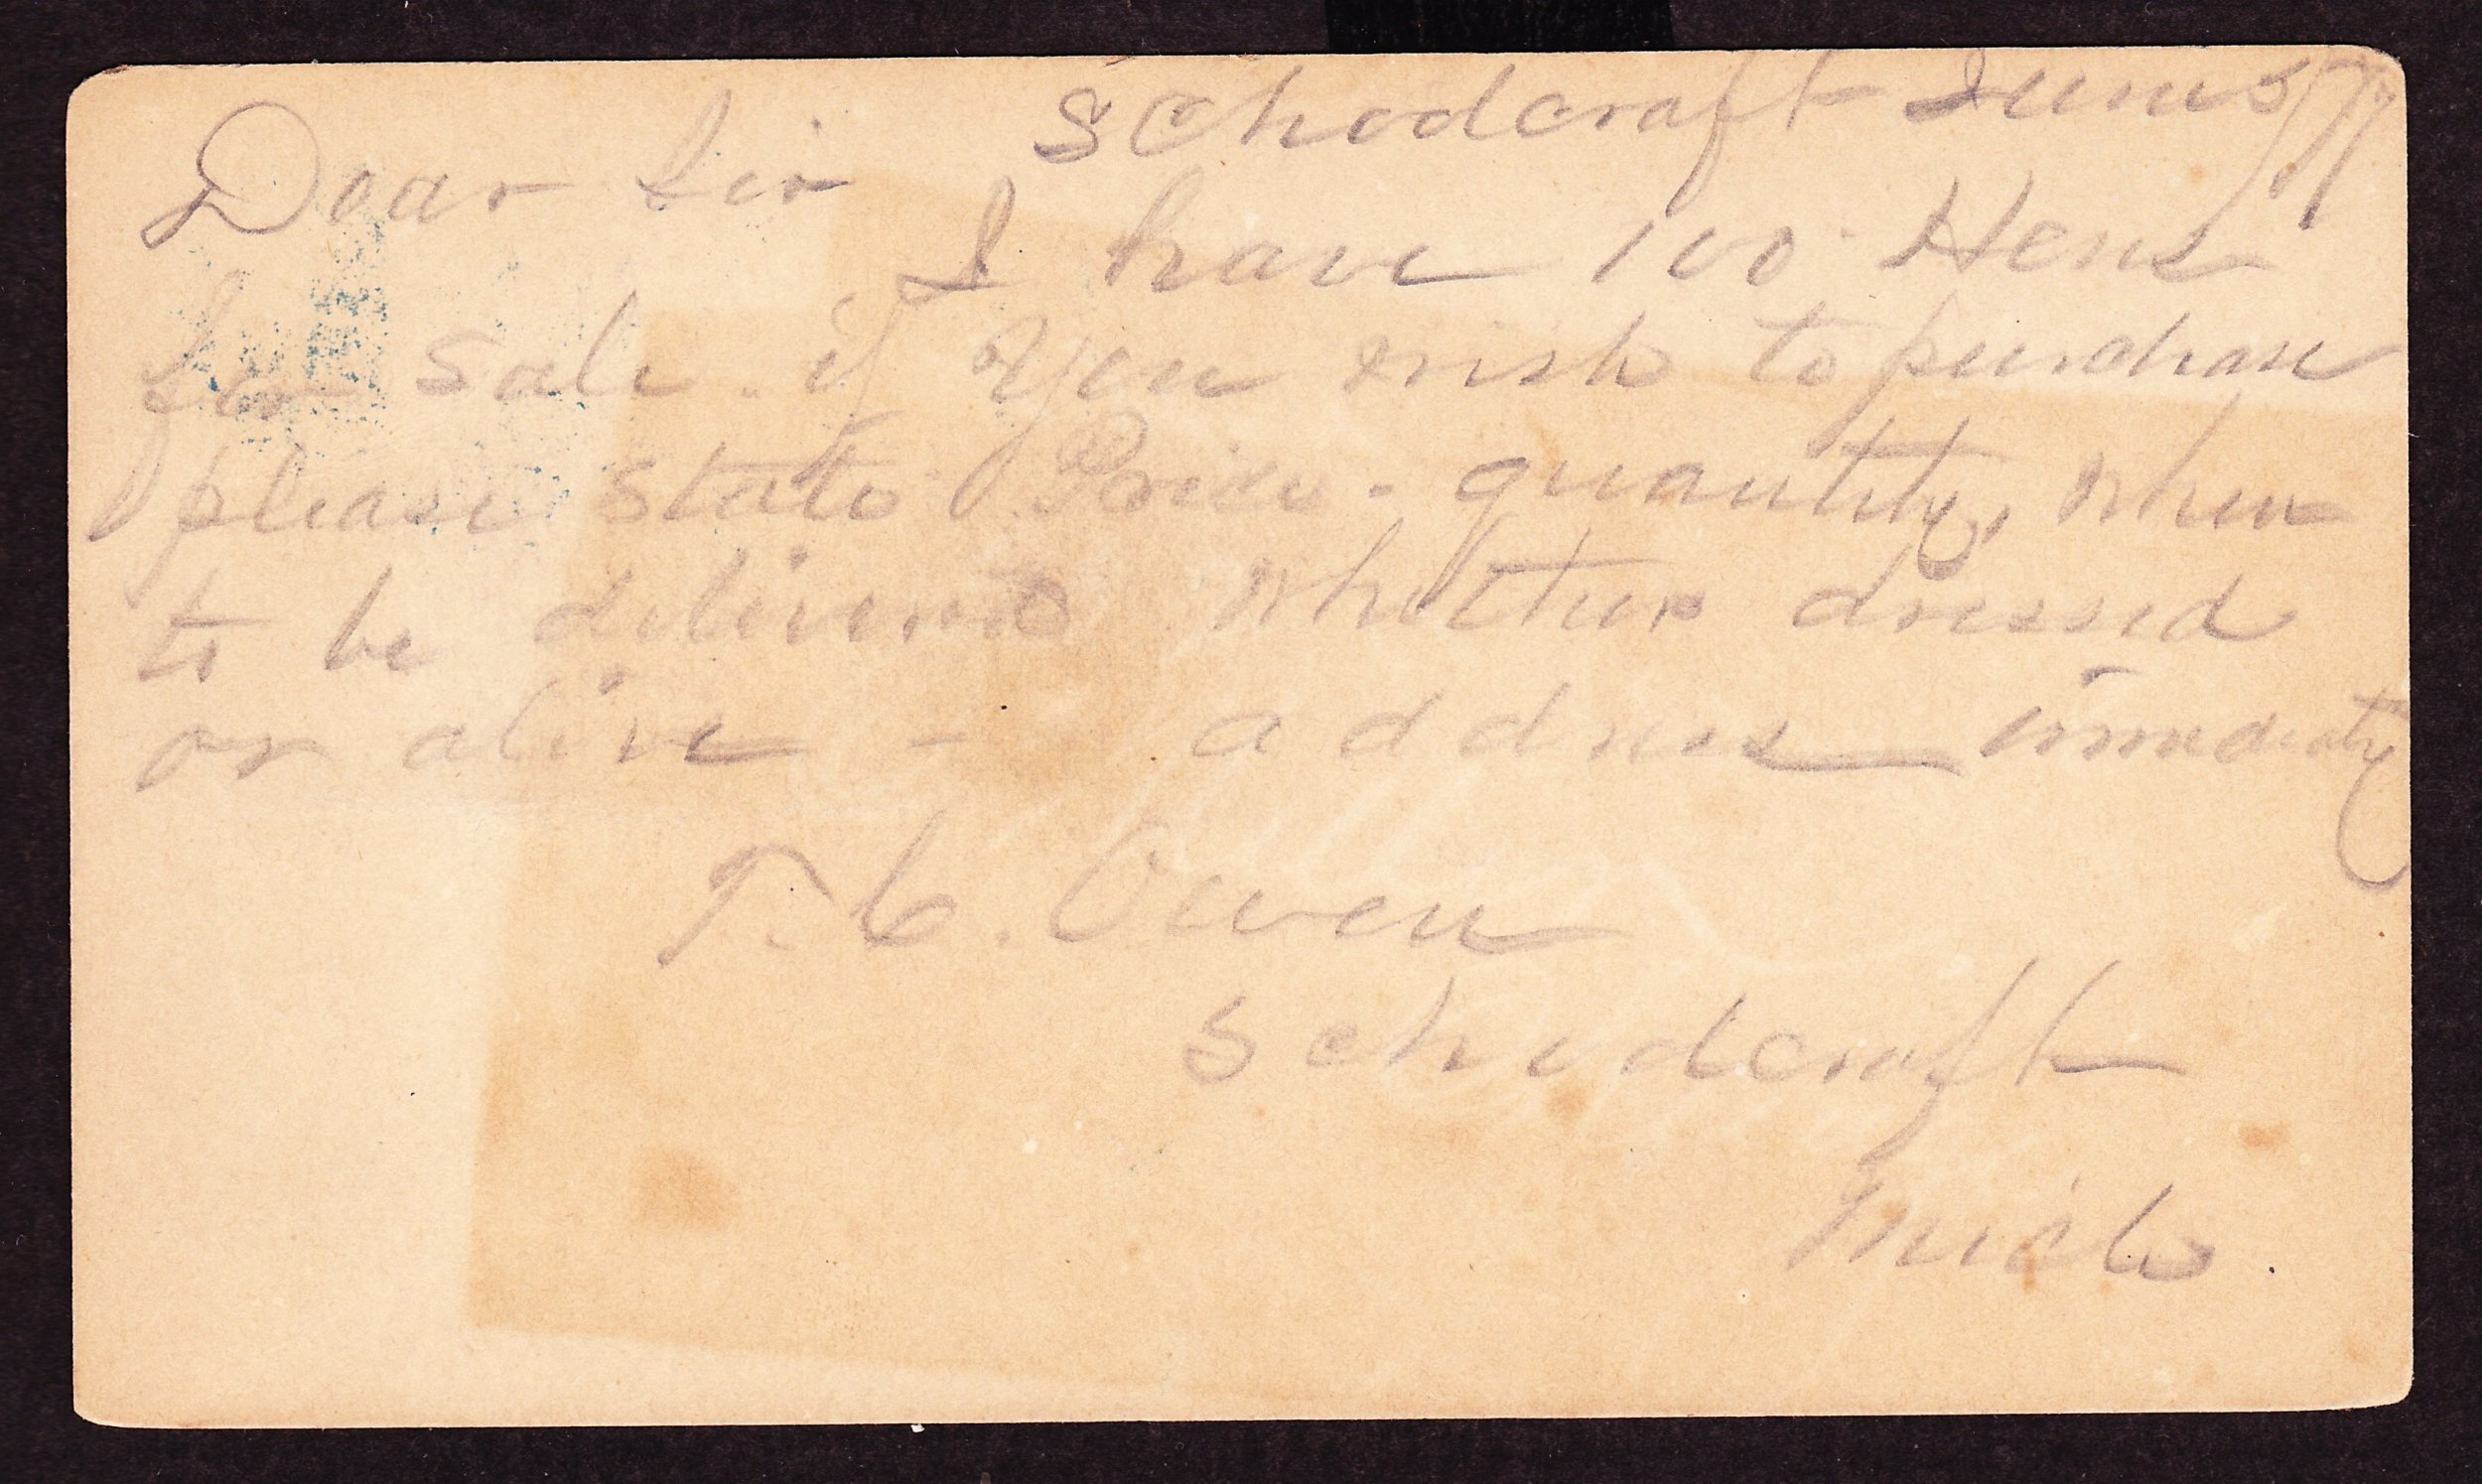 Schoolcraft June 5/77
Dear Sir
I have 100 Hens
for sale if you wish to purchase
please state Price - quantity, when
to be delivered whether dressed
or alive - address immediatly
T. C. Owen
Schoolcraft
Mich.